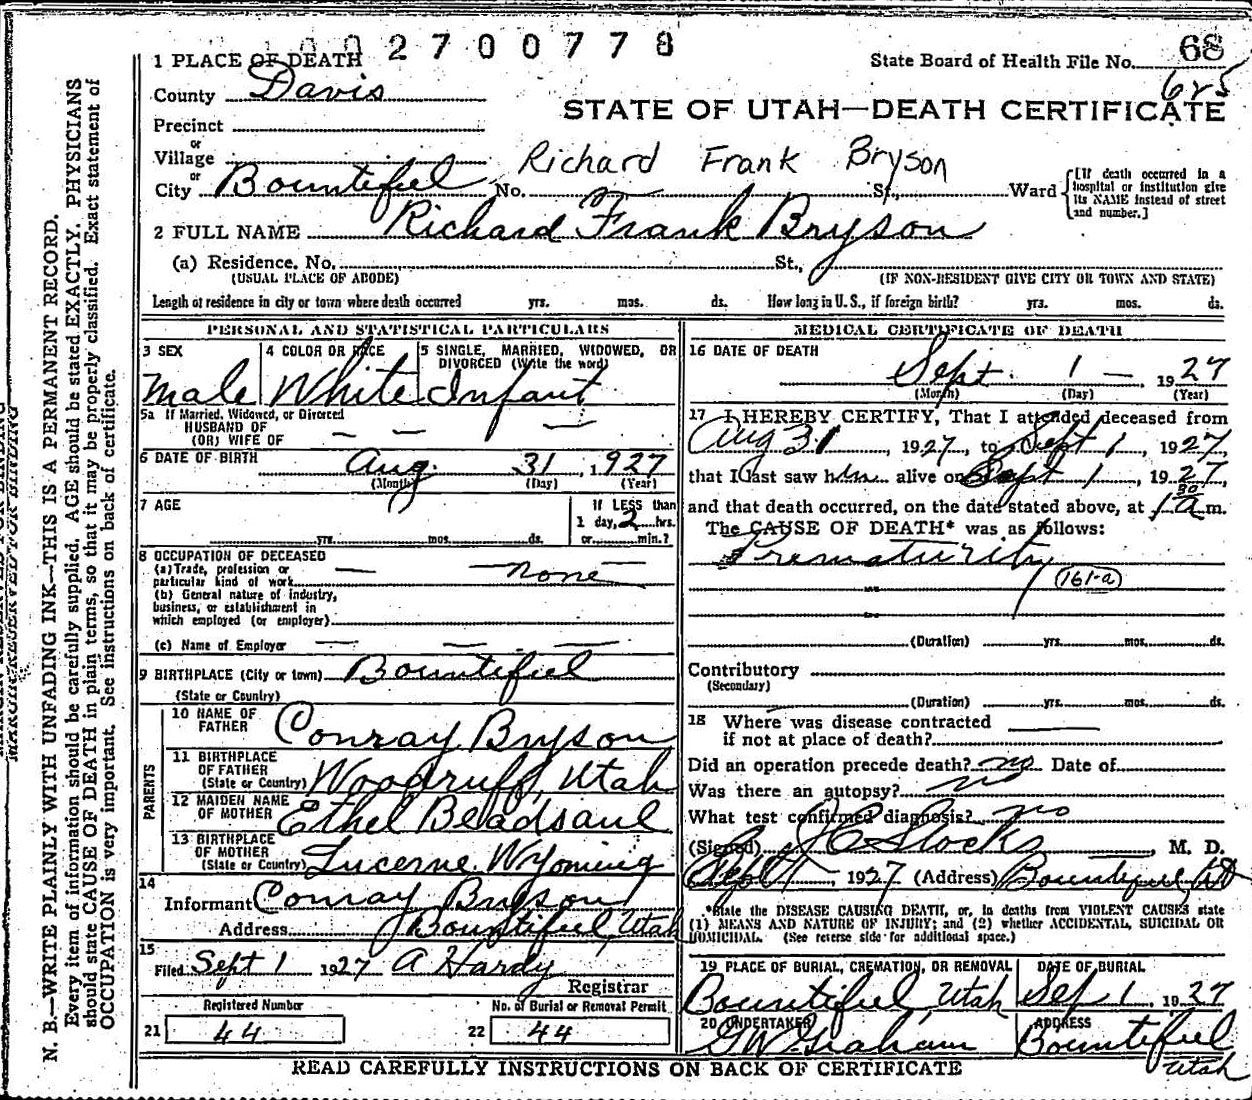 002700778
1 PLACE OF DEATH
State Board of Health File No. 68
625
County Davis
STATE OF UTAH—DEATH CERTIFICATE
Precinct
or
Village
Richard Frank Bryson
or
City Bountiful No. St., Ward
[If death occurred in a hospital or institution give its NAME instead of street and number.]
2 FULL NAME Richard Frank Bryson
(a) Residence. No. St.,
(USUAL PLACE OF ABODE) (IF NON-RESIDENT GIVE CITY OR TOWN AND STATE)
Length of residence in city or town where death occurred yrs. mos. ds. How long in U. S., if foreign birth? yrs. mos. ds.
PERSONAL AND STATISTICAL PARTICULARS
3 SEX
Male
4 COLOR OR RACE
White
5 SINGLE, MARRIED, WIDOWED, OR DIVORCED (Write the word)
Infant
5a If Married, Widowed, or Divorced
HUSBAND OF
(OR) WIFE OF — — —
6 DATE OF BIRTH Aug. 31, 1927
(Month) (Day) (Year)
7 AGE
yrs. mos. ds.
If LESS than
1 day, 2 hrs.
or min.?
8 OCCUPATION OF DECEASED
(a) Trade, profession or
particular kind of work — none
(b) General nature of industry,
business, or establishment in
which employed (or employer)
(c) Name of Employer — — —
9 BIRTHPLACE (City or town) Bountiful
(State or Country)
PARENTS
10 NAME OF FATHER Conray Bryson
11 BIRTHPLACE OF FATHER
(State or Country) Woodruff, Utah
12 MAIDEN NAME OF MOTHER Ethel Beadsaul
13 BIRTHPLACE OF MOTHER
(State or Country) Lucerne Wyoming
14
Informant Conray Bryson
Address Bountiful, Utah
15
Filed Sept 1 1927 A Hardy
Registrar
Registered Number
21 44
No. of Burial or Removal Permit
22 44
MEDICAL CERTIFICATE OF DEATH
16 DATE OF DEATH
Sept. 1 —, 1927
(Month) (Day) (Year)
17 I HEREBY CERTIFY, That I attended deceased from
Aug 31, 1927, to Sept 1, 1927
that I last saw him alive on Sept 1, 1927,
and that death occurred, on the date stated above, at 1 30 a m.
The CAUSE OF DEATH* was as follows:
Prematurity
161-a
(Duration) yrs. mos. ds.
Contributory
(Secondary)
(Duration) yrs. mos. ds.
18 Where was disease contracted
if not at place of death?
Did an operation precede death? no Date of
Was there an autopsy? no
What test confirmed diagnosis? no
(Signed) J C Stocks, M. D.
Sept 1, 1927 (Address) Bountiful, Ut
*State the DISEASE CAUSING DEATH, or, in deaths from VIOLENT CAUSES state
(1) MEANS AND NATURE OF INJURY; and (2) whether ACCIDENTAL, SUICIDAL OR
HOMICIDAL. (See reverse side for additional space.)
19 PLACE OF BURIAL, CREMATION, OR REMOVAL
Bountiful, Utah
DATE OF BURIAL
Sep 1, 1927
20 UNDERTAKER
G W Graham
ADDRESS
Bountiful
Utah
READ CAREFULLY INSTRUCTIONS ON BACK OF CERTIFICATE
MARGIN RESERVED FOR BINDING
N. B.—WRITE PLAINLY WITH UNFADING INK—THIS IS A PERMANENT RECORD.
Every item of information should be carefully supplied. AGE should be stated EXACTLY. PHYSICIANS
should state CAUSE OF DEATH in plain terms, so that it may be properly classified. Exact statement of
OCCUPATION is very important. See instructions on back of certificate.